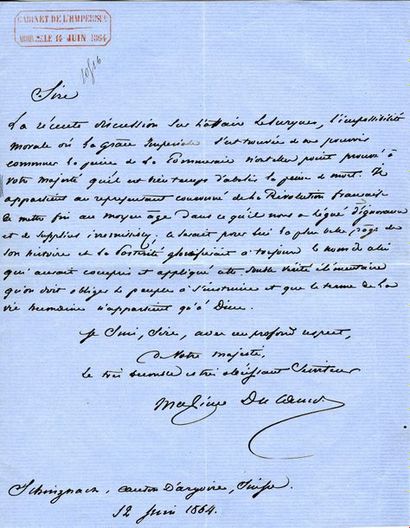 CABINET DE L'EMPEREUR
14 JUIN 1864
Sire
La récente discussion sur l'affaire Lesurques, l'impossibilité
morale où la Grâce Impériale s'est trouvée de ne pouvoir
commuer la peine de la Pommerais n'ont elles point prouvé à
Votre Majesté qu'il est bien temps d'abolir la peine de mort. Il
appartient au représentant couronné de la Révolution française
de mettre fin au moyen âge dans ce qu'il nous a légué d'ignorance
et de supplices ; ce serait pour lui la plus belle page de
son histoire et la Postérité glorifierait à toujours le nom de celui
qui aurait compris et appliqué cette double vérité élémentaire
qu'on doit obliger le peuple à s'instruire et que le terme de la
vie humaine n'appartient qu'à Dieu.
Je suis, Sire, avec un profond respect,
de Votre Majesté,
le très humble et très obéissant Serviteur
Maxime Du Camp
Schinznach, canton d'Argovie, Suisse.
12 Juin 1864.